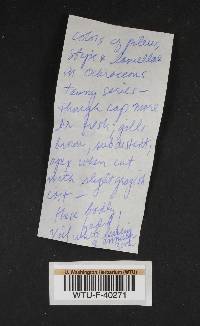 Colors of pileus,
stipe & lamellae
in Ochraceous
tawny series –
though cap more
br. fresh: gills
brown, subdistant,
when cut
with slight grayish
cast –
Please
Veil
U. Washington Herbarium (WTU)
WTU-F-40271